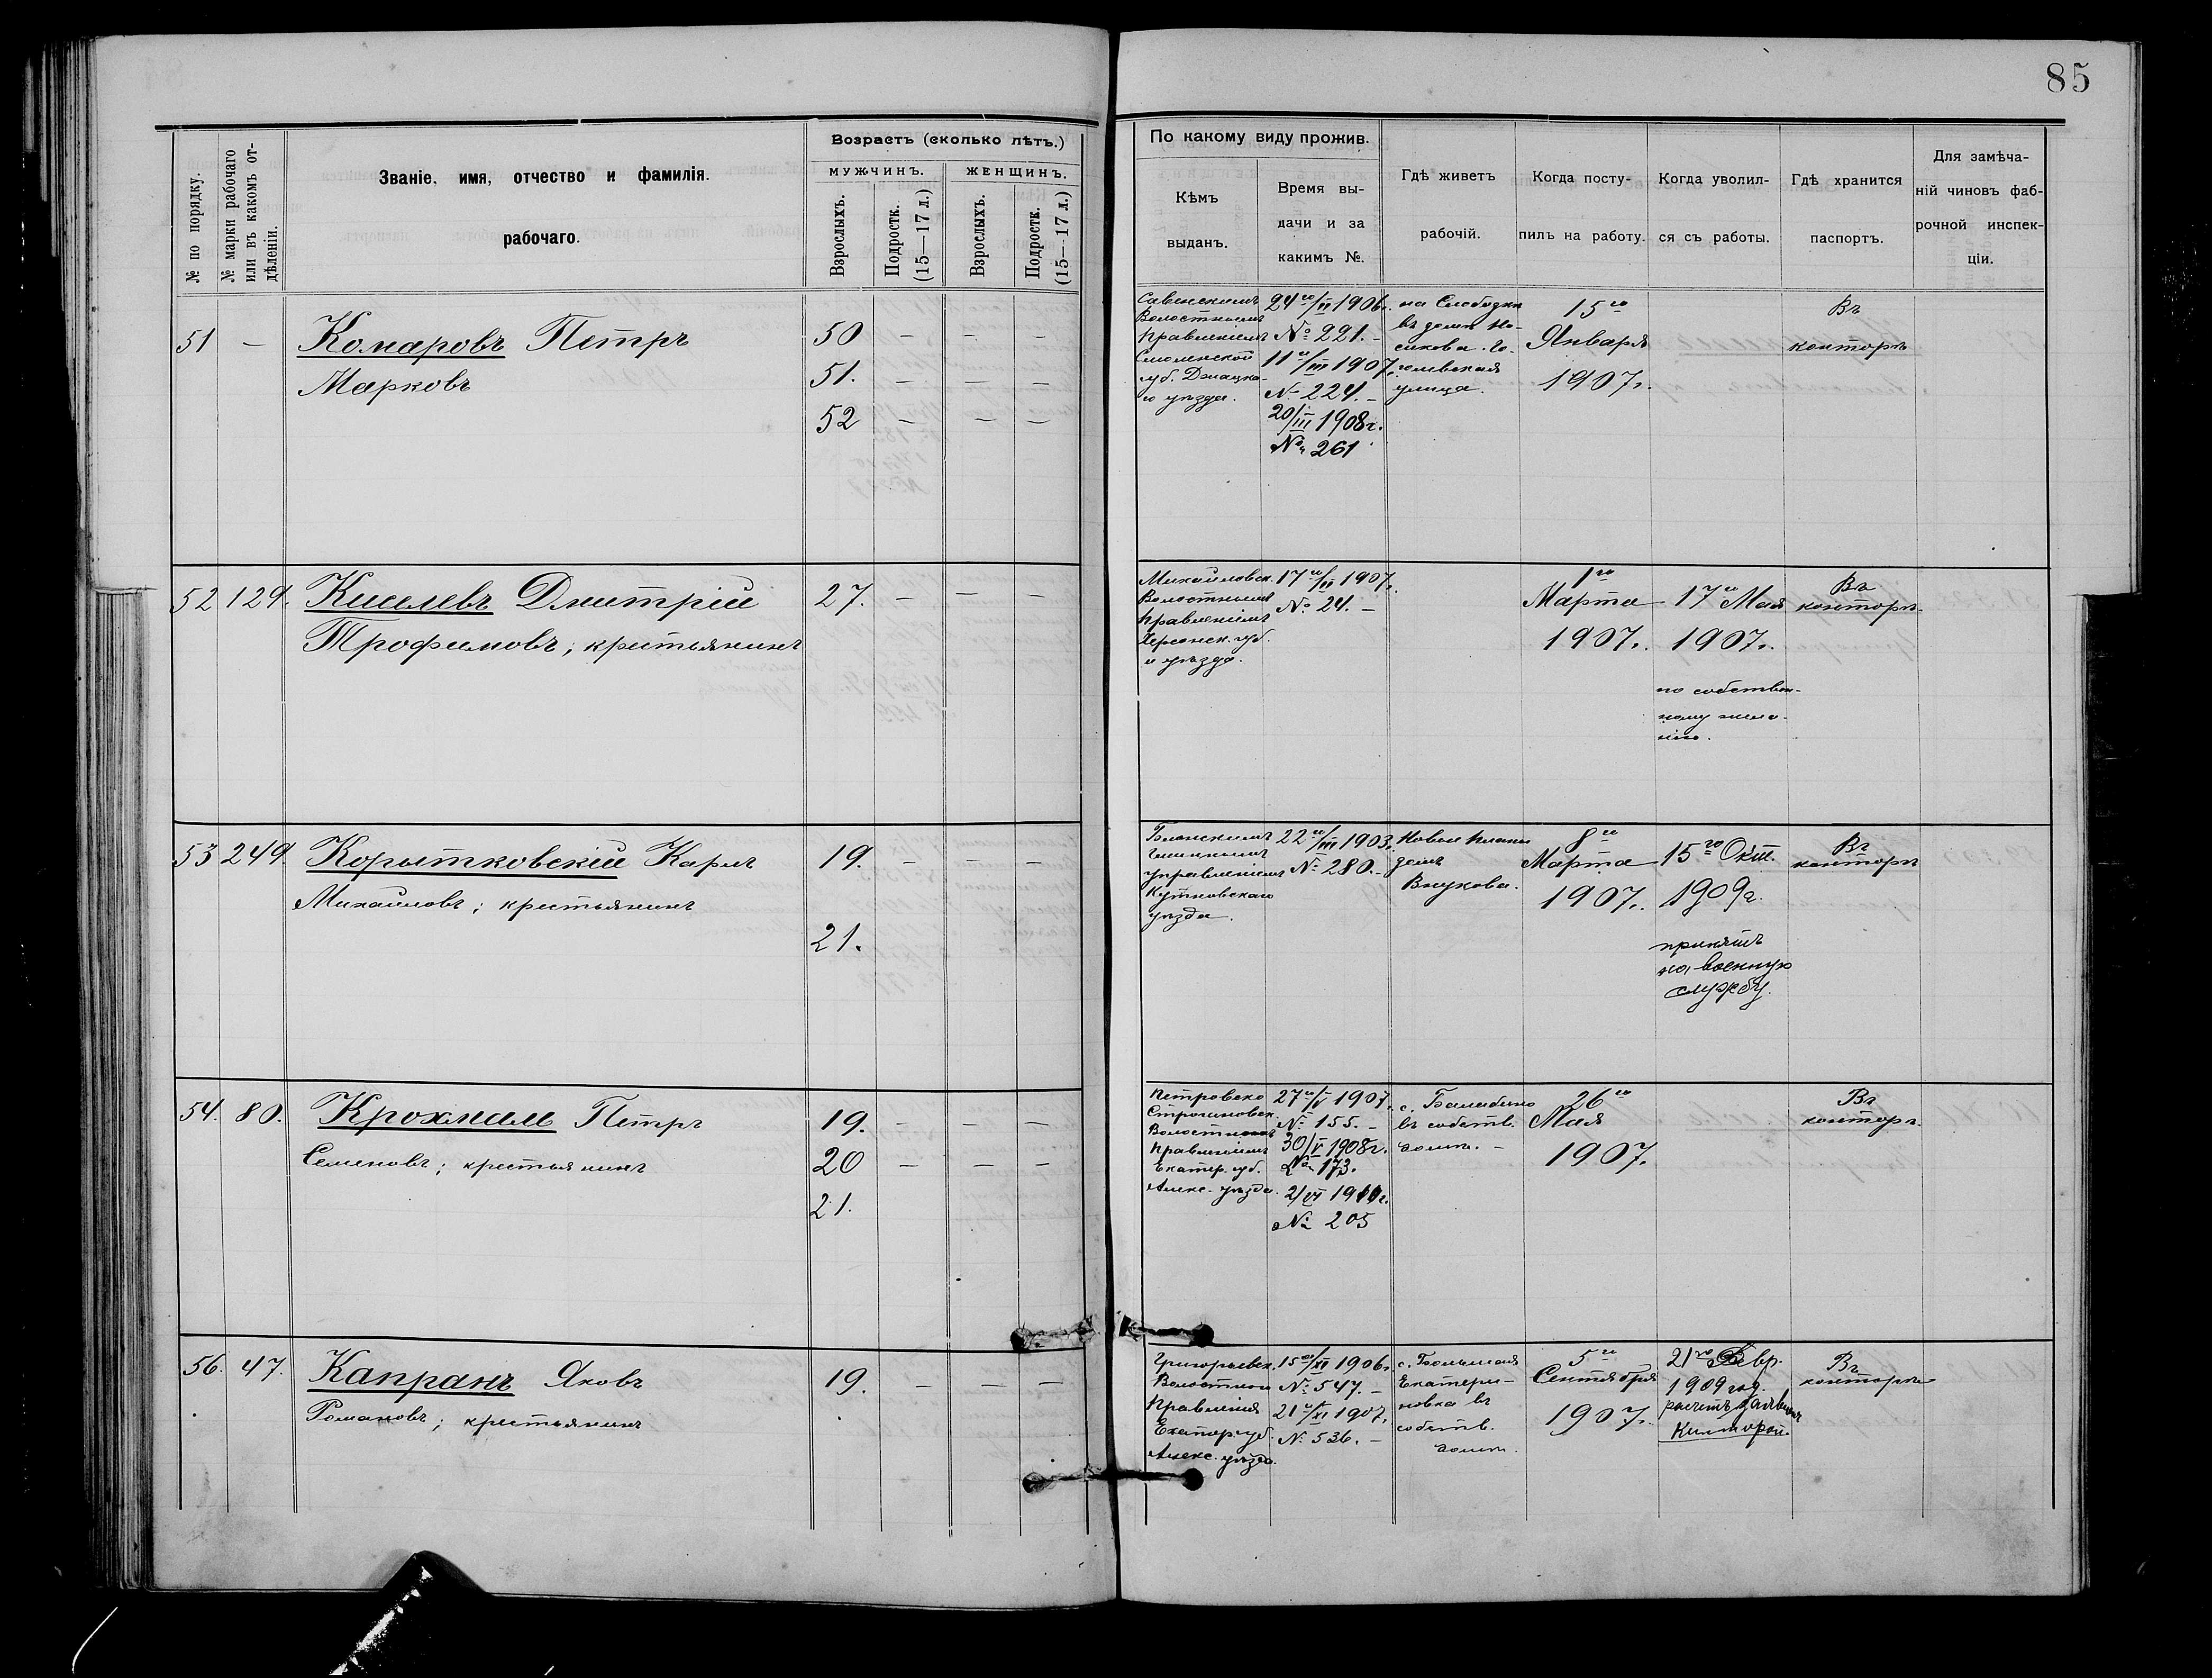 85
№ по порядку.
№ марки рабочаго
или въ какомъ от-
дѣленіи.
Званіе, имя, отчество и фамилія.
рабочаго.
Возрастъ (сколько лѣтъ.)
мужчинъ.
женщинъ.
Взрослыхъ.
Подростк.
(15—17 л.)
Взрослыхъ.
Подростк.
(15—17 л.)
По какому виду прожив.
Кѣмъ
выданъ.
Время вы-
дачи и за
какимъ №.
Гдѣ живетъ
рабочій.
Когда посту-
пилъ на работу.
Когда уволил-
ся съ работы.
Гдѣ хранится
паспортъ.
Для замѣча-
ній чиновъ фаб-
рочной инспек-
ціи.
51 —
Комаровъ Петръ
Марковъ
50 — — —
51. — — —
52 — — —
Волостнымъ
Правленіемъ
Смоленской
губ.
уѣзда.
24го/VI 1906г.
№ 221. —
11го/III 1907г.
№ 224. —
20/III 1908г.
№ 261
на Слободкѣ
въ домѣ Но-
сикова. Го-
голевская
улица.
15го
Января
1907г.
Въ
конторѣ
52 129.
Киселевъ Дмитрій
Трофимовъ; крестьянинъ
27. — — —
Михайловск.
Волостнымъ
Правленіемъ
Херсонск. губ.
и уѣзда.
17го/II 1907г.
№ 24. —
1го
Марта
1907г.
17го Мая
1907г.
по собствен-
ному жела-
нію.
Въ
конторѣ.
53 249.
Корытковскій Карлъ
Михайловъ; крестьянинъ
19. — — —
21.
Гминнымъ
управленіемъ
Кутновскаго
уѣзда.
22го/III 1903г.
№ 280. —
Новые планы
домъ
Внукова.
8го
Марта
1907г.
15го Окт.
1909г.
принятъ
на военную
службу.
Въ
конторѣ
54. 80.
Крохмаль Петръ
Семеновъ; крестьянинъ
19. — — —
20 — — —
21.
Петровско
Строгановск.
Волостнымъ
Правленіемъ
Екатер. губ.
Алекс. уѣзда.
27го/V 1907г.
№ 155. —
30/V 1908г.
№ 173.
2/VI 1910г.
№ 205
с. Балабино
въ собств.
домѣ. —
26го
Мая
1907г.
Въ
конторѣ.
56. 47.
Капранъ Яковъ
Романовъ; крестьянинъ
19. — — —
Григорьевск.
Волостнымъ
Правленія
Екатер. губ.
Алекс. уѣзда.
15го/XI 1906г.
№ 547. —
21го/XI 1907г.
№ 536. —
с. Большая
Екатери-
новка въ
собств.
домѣ.
5го
Сентября
1907г.
21го Февр.
1909 год.
расчетъ
Конторой.
Въ
конторѣ